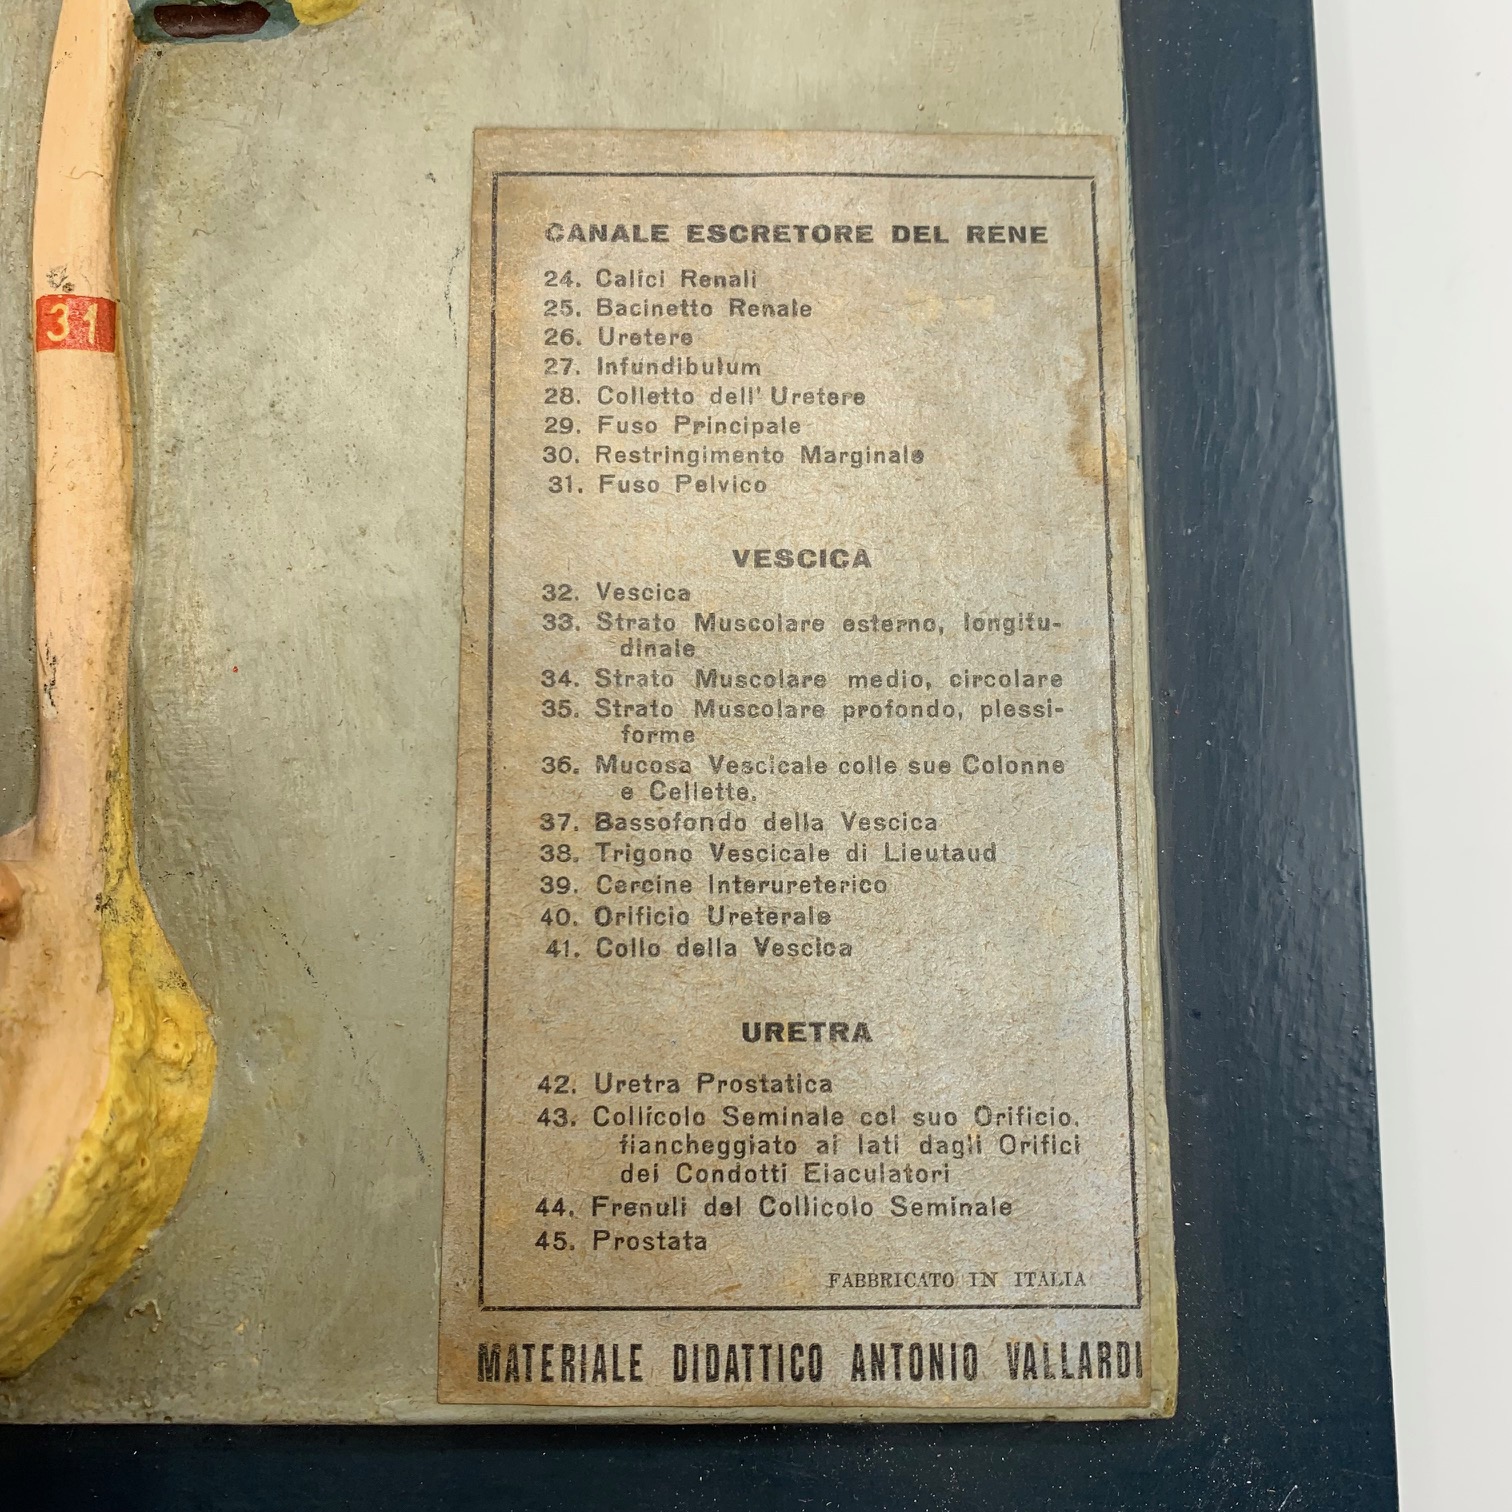 31
CANALE ESCRETORE DEL RENE
24. Calici Renali
25. Bacinetto Renale
26. Uretere
27. Infundibulum
28. Colletto dell' Uretere
29. Fuso Principale
30. Restringimento Marginale
31. Fuso Pelvico
VESCICA
32. Vescica
33. Strato Muscolare esterno, longitu-
dinale
34. Strato Muscolare medio, circolare
35. Strato Muscolare profondo, plessi-
forme
36. Mucosa Vescicale colle sue Colonne
e Cellette.
37. Bassofondo della Vescica
38. Trigono Vescicale di Lieutaud
39. Cercine Interureterico
40. Orificio Ureterale
41. Collo della Vescica
URETRA
42. Uretra Prostatica
43. Collicolo Seminale col suo Orificio.
fiancheggiato ai lati dagli Orifici
dei Condotti Eiaculatori
44. Frenuli del Collicolo Seminale
45. Prostata
FABBRICATO IN ITALIA
MATERIALE DIDATTICO ANTONIO VALLARDI